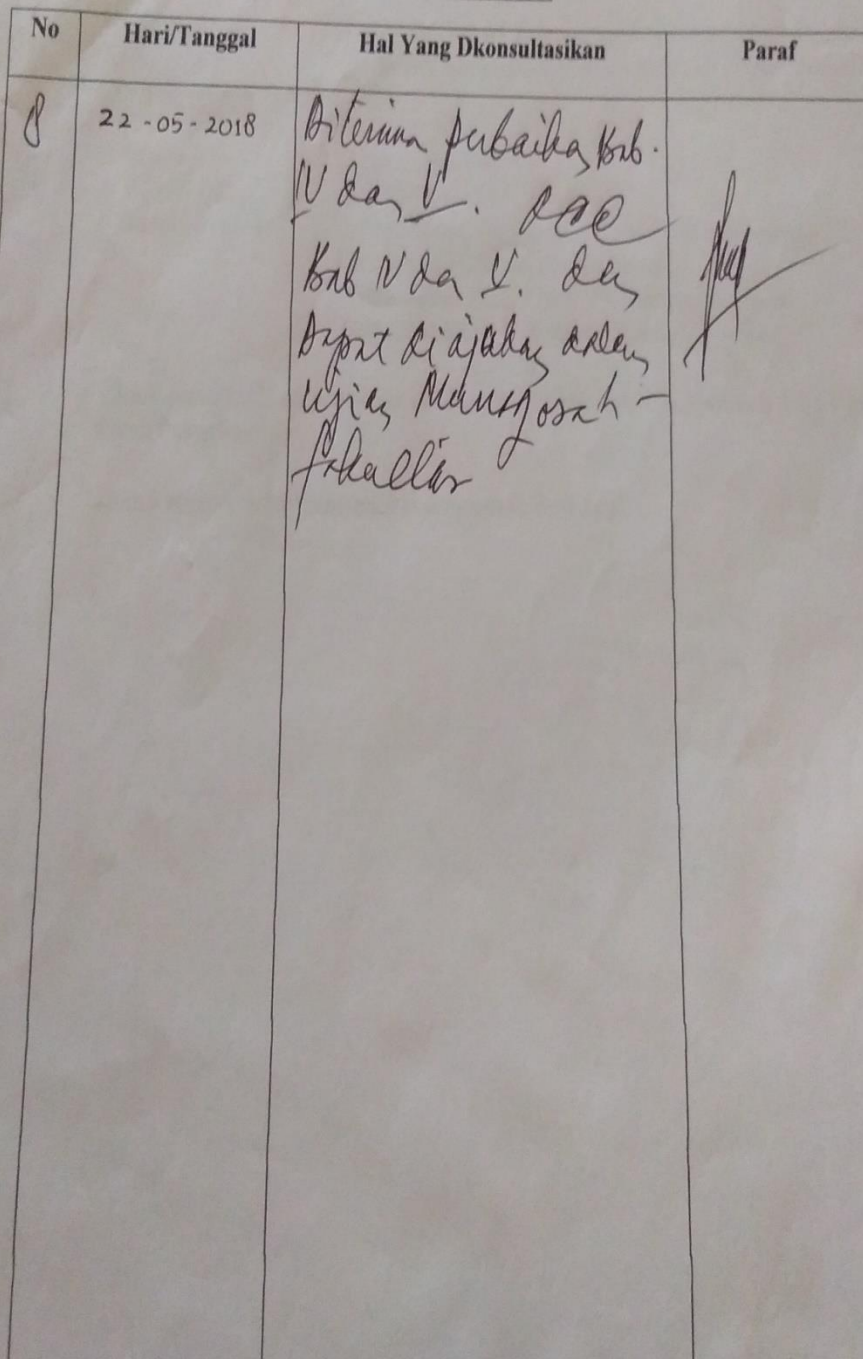 No Hari/Tanggal Hal Yang Dkonsultasikan Paraf
8 22-05-2018 Diterima perbaikan Bab.
IV dan V. acc
Bab IV dan V. dan
Dapat diajukan dalam
ujian Munaqosah -
fakultas